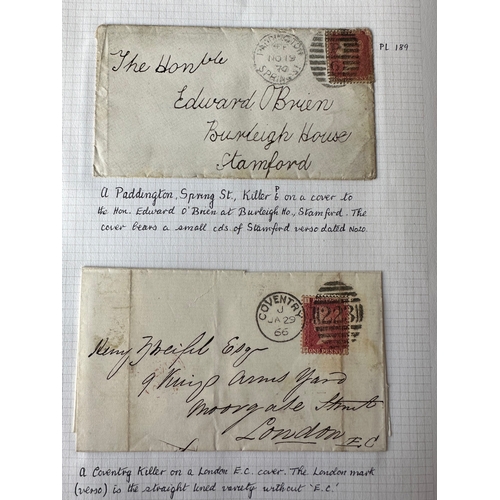 PL 189
The Honble
Edward O'Brien
Burleigh House
Stamford
PADDINGTON
NO 19
70
SPRING ST
A Paddington, Spring St., Killer P/6 on a cover to
the Hon. Edward O'Brien at Burleigh Ho., Stamford. The
cover bears a small cds of Stamford verso dated No20.
COVENTRY
J
JA 29
66
223
ONE PENNY
Esq
9 Kings Arms Yard
Moorgate Street
London
E.C
A Coventry Killer on a London E.C. cover. The London mark
(verso) is the straight lined variety without 'E.C.'